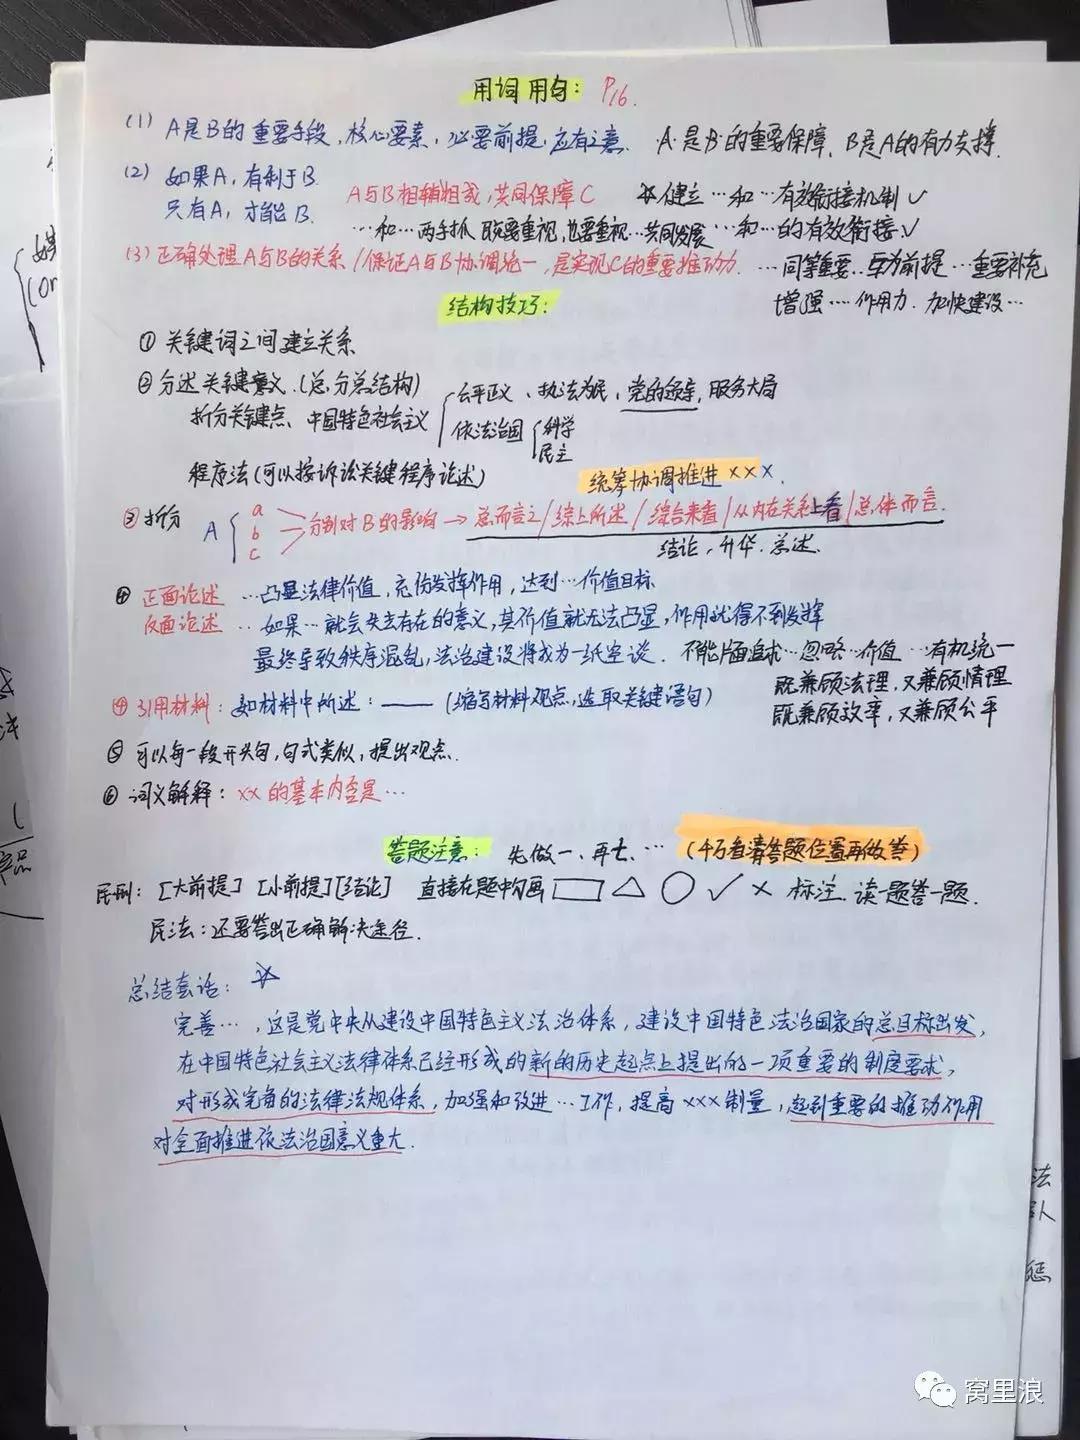 用词用句： P16.
(1) A是B的重要手段，核心要素，必要前提，应有之意. A是B的重要保障，B是A的有力支撑.
(2) 如果A，有利于B.
只有A，才能B. A与B相辅相成，共同保障C ☆健立…和…有效衔接机制✓
…和…两手抓 既要重视，也要重视…共同发展 …和…的有效衔接✓
(3) 正确处理A与B的关系//保证A与B协调统一，是实现C的重要推动力. …同等重要..互为前提…重要补充
增强……作用力. 加快建设…
结构技巧：
① 关键词之间建立关系
② 分述关键意义.(总.分总结构)
拆分关键点、中国特色社会主义 公平正义、执法为民，党的领导，服务大局
依法治国 科学
民主
程序法(可以按诉讼关键程序论述) 统筹协调推进×××.
③ 拆分 A a b c 分别对B的影响→总而言之/综上所述/综合来看/从内在关系上看/总体而言.
结论，升华.总述.
④ 正面论述 …凸显法律价值，充份发挥作用，达到…价值目标
反面论述 ..如果…就会失去存在的意义，其价值就无法凸显，作用就得不到发挥
最终导致秩序混乱，法治建设将成为一纸空谈. 不能片面追求…忽略…价值…有机统一
既兼顾法理，又兼顾情理
既兼顾效率，又兼顾公平
④ 引用材料：如材料中所述：——(缩写材料观点，选取关键语句)
⑤ 可以每一段开头句，句式类似，提出观点.
⑥ 词义解释：××的基本内容是…
答题注意： 先做一、再七、… (千万看清答题位置再做答)
民刑：[大前提] [小前提][结论] 直接在题中勾画 □ △ ○ ✓ × 标注. 读一题答一题.
民法：还要答出正确解决途径.
总结套话： ☆
完善…，这是党中央从建设中国特色主义法治体系，建设中国特色法治国家的总目标出发，
在中国特色社会主义法律体系已经形成的新的历史起点上提出的一项重要的制度要求，
对形成完备的法律法规体系，加强和改进…工作，提高×××制量，起到重要的推动作用
对全面推进依法治国意义重大.
产品
法
惩
窝里浪